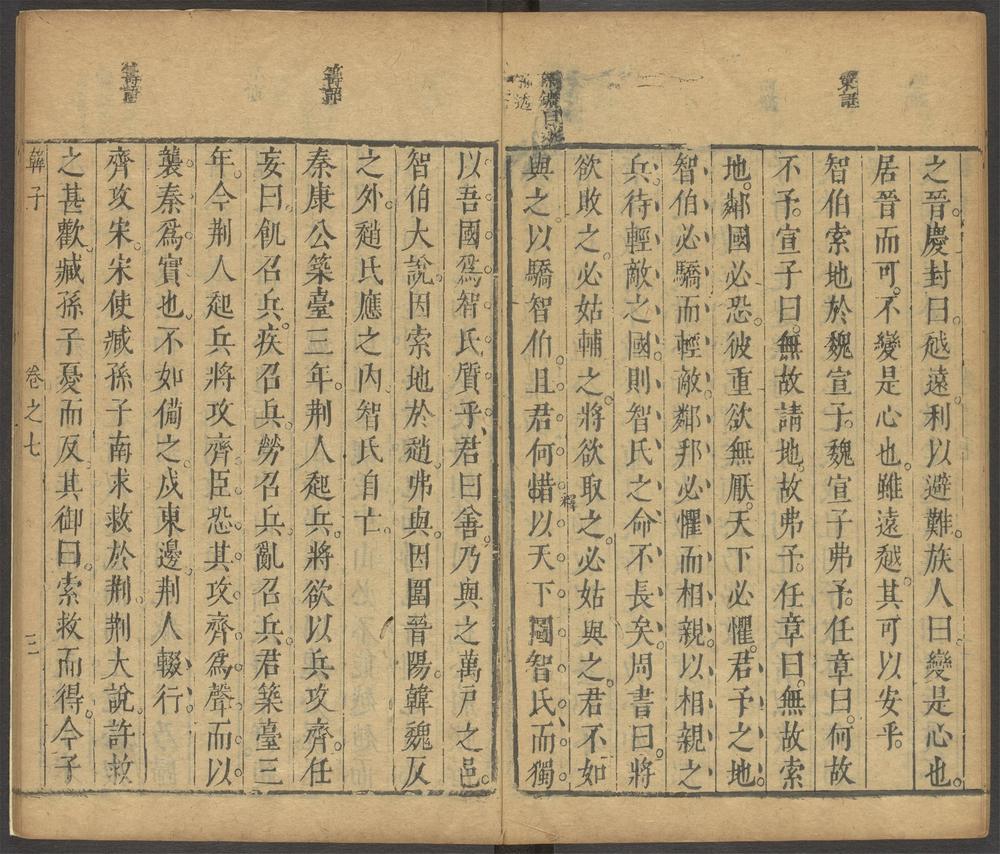 之晉慶封曰越遠利以避難族人曰變是心也
居晉而可不變是心也雖遠越其可以安乎
智伯索地於魏宣子魏宣子弗予任章曰何故
不予宣子曰無故請地故弗予任章曰無故索
地鄰國必恐彼重欲無厭天下必懼君予之地
智伯必驕而輕敵鄰邦必懼而相親以相親之
兵待輕敵之國則智氏之命不長矣周書曰將
欲敗之必姑輔之將欲取之必姑與之君不如
與之以驕智伯且君何惜以天下圖智氏而獨
釋
以吾國爲智氏質乎君曰善乃與之萬戶之邑
智伯大說因索地於趙弗與因圍晉陽韓魏反
之外趙氏應之內智氏自亡
秦康公築臺三年荆人起兵將欲以兵攻齊任
妄曰飢召兵疾召兵勞召兵亂召兵君築臺三
年今荆人起兵將攻齊臣恐其攻齊爲聲而以
襲秦爲實也不如備之戍東邊荆人輟行
齊攻宋宋使臧孫子南求救於荆荆大說許救
之甚歡臧孫子憂而反其御曰索救而得今子
韓子
卷之七
三